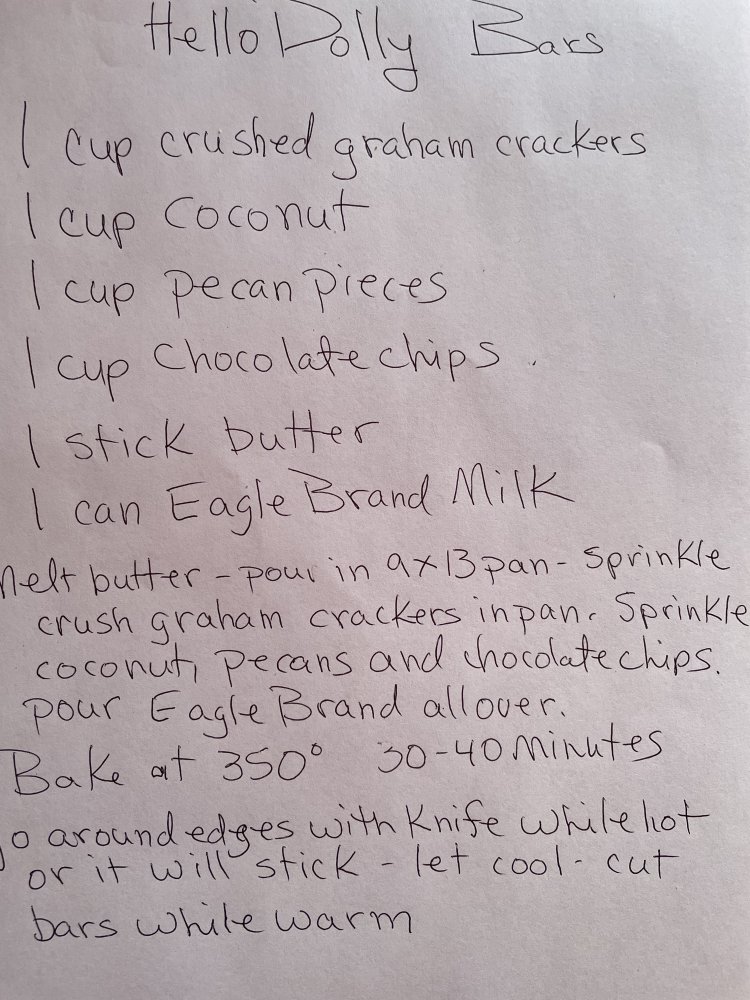 Hello Dolly Bars
1 cup crushed graham crackers
1 cup coconut
1 cup pecan pieces
1 cup chocolate chips.
1 stick butter
1 can Eagle Brand Milk
Melt butter - pour in 9x13 pan - Sprinkle
crush graham crackers in pan. Sprinkle
coconut, pecans and chocolate chips.
pour Eagle Brand all over.
Bake at 350° 30-40 Minutes
Go around edges with Knife while hot
or it will stick - let cool - cut
bars while warm